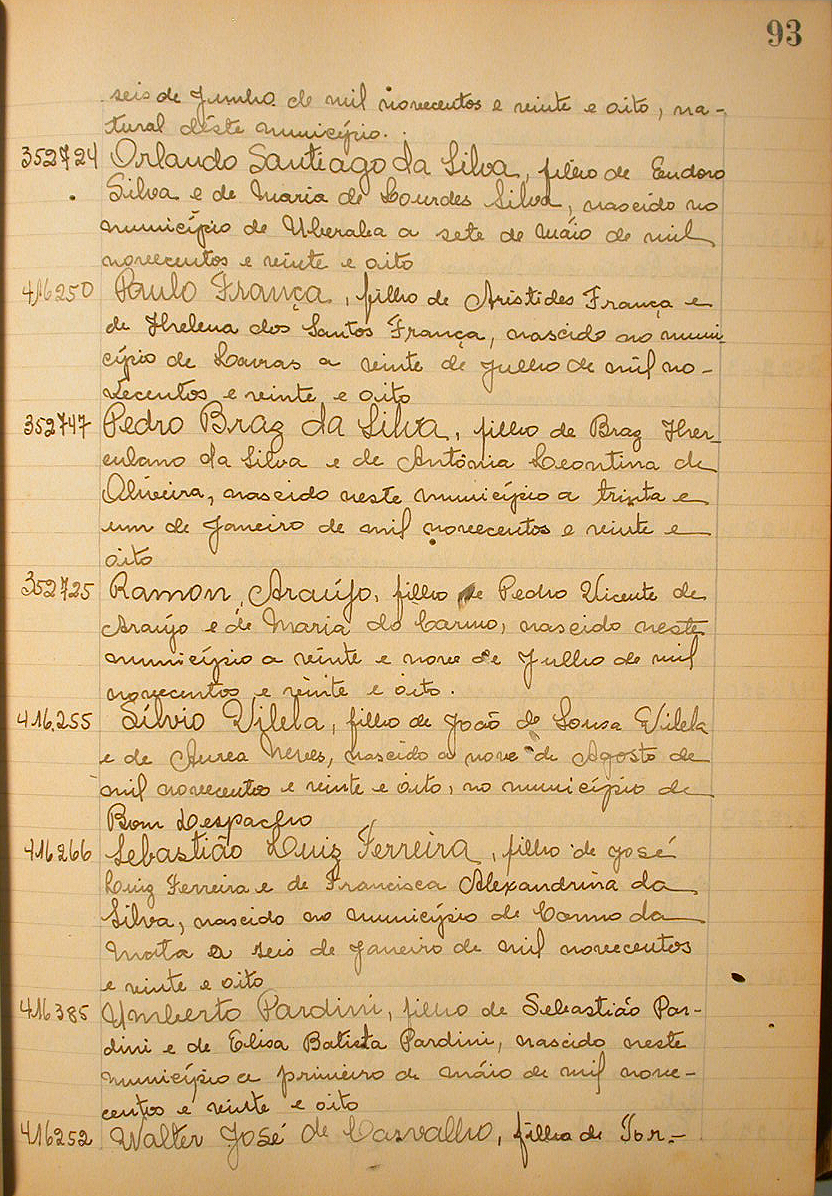 93
seis de Junho de mil novecentos e vinte e oito, na-
tural dêste município.
352724 Orlando Santiago da Silva, filho de Eudoro
Silva e de Maria de Lourdes Silva, nascido no
município de Uberaba a sete de máio de mil
novecentos e vinte e oito
416250 Paulo França, filho de Aristides França e
de Hhelena dos Santos França, nascido no muni-
cípio de Lavras a vinte de Julho de mil no-
vecentos e vinte e oito
352747 Pedro Braz da Silva, filho de Braz Her-
culano da Silva e de Antônia Leontina de
Oliveira, nascido neste município a trinta e
um de Janeiro de mil novecentos e vinte e
oito
352725 Ramon Araújo, filho de Pedro Vicente de
Araújo e de Maria do Carmo, nascido neste
município a vinte e nove de Julho de mil
novecentos e vinte e oito.
416.255 Sílvio Vilela, filho de João de Sousa Vilela
e de Aurea Neves, nascido a nove de Agosto de
mil novecentos e vinte e oito, no município de
Bom Despacho
416266 Sebastião Luiz Ferreira, filho de José
Luiz Ferreira e de Francisca Alexandrina da
Silva, nascido no município de Carmo da
Mata a seis de Janeiro de mil novecentos
e vinte e oito
416385 Umberto Pardini, filho de Sebastião Par-
dini e de Elisa Batista Pardini, nascido neste
município a primeiro de máio de mil nove-
centos e vinte e oito
416252 Walter José de Carvalho, filho de Tor-